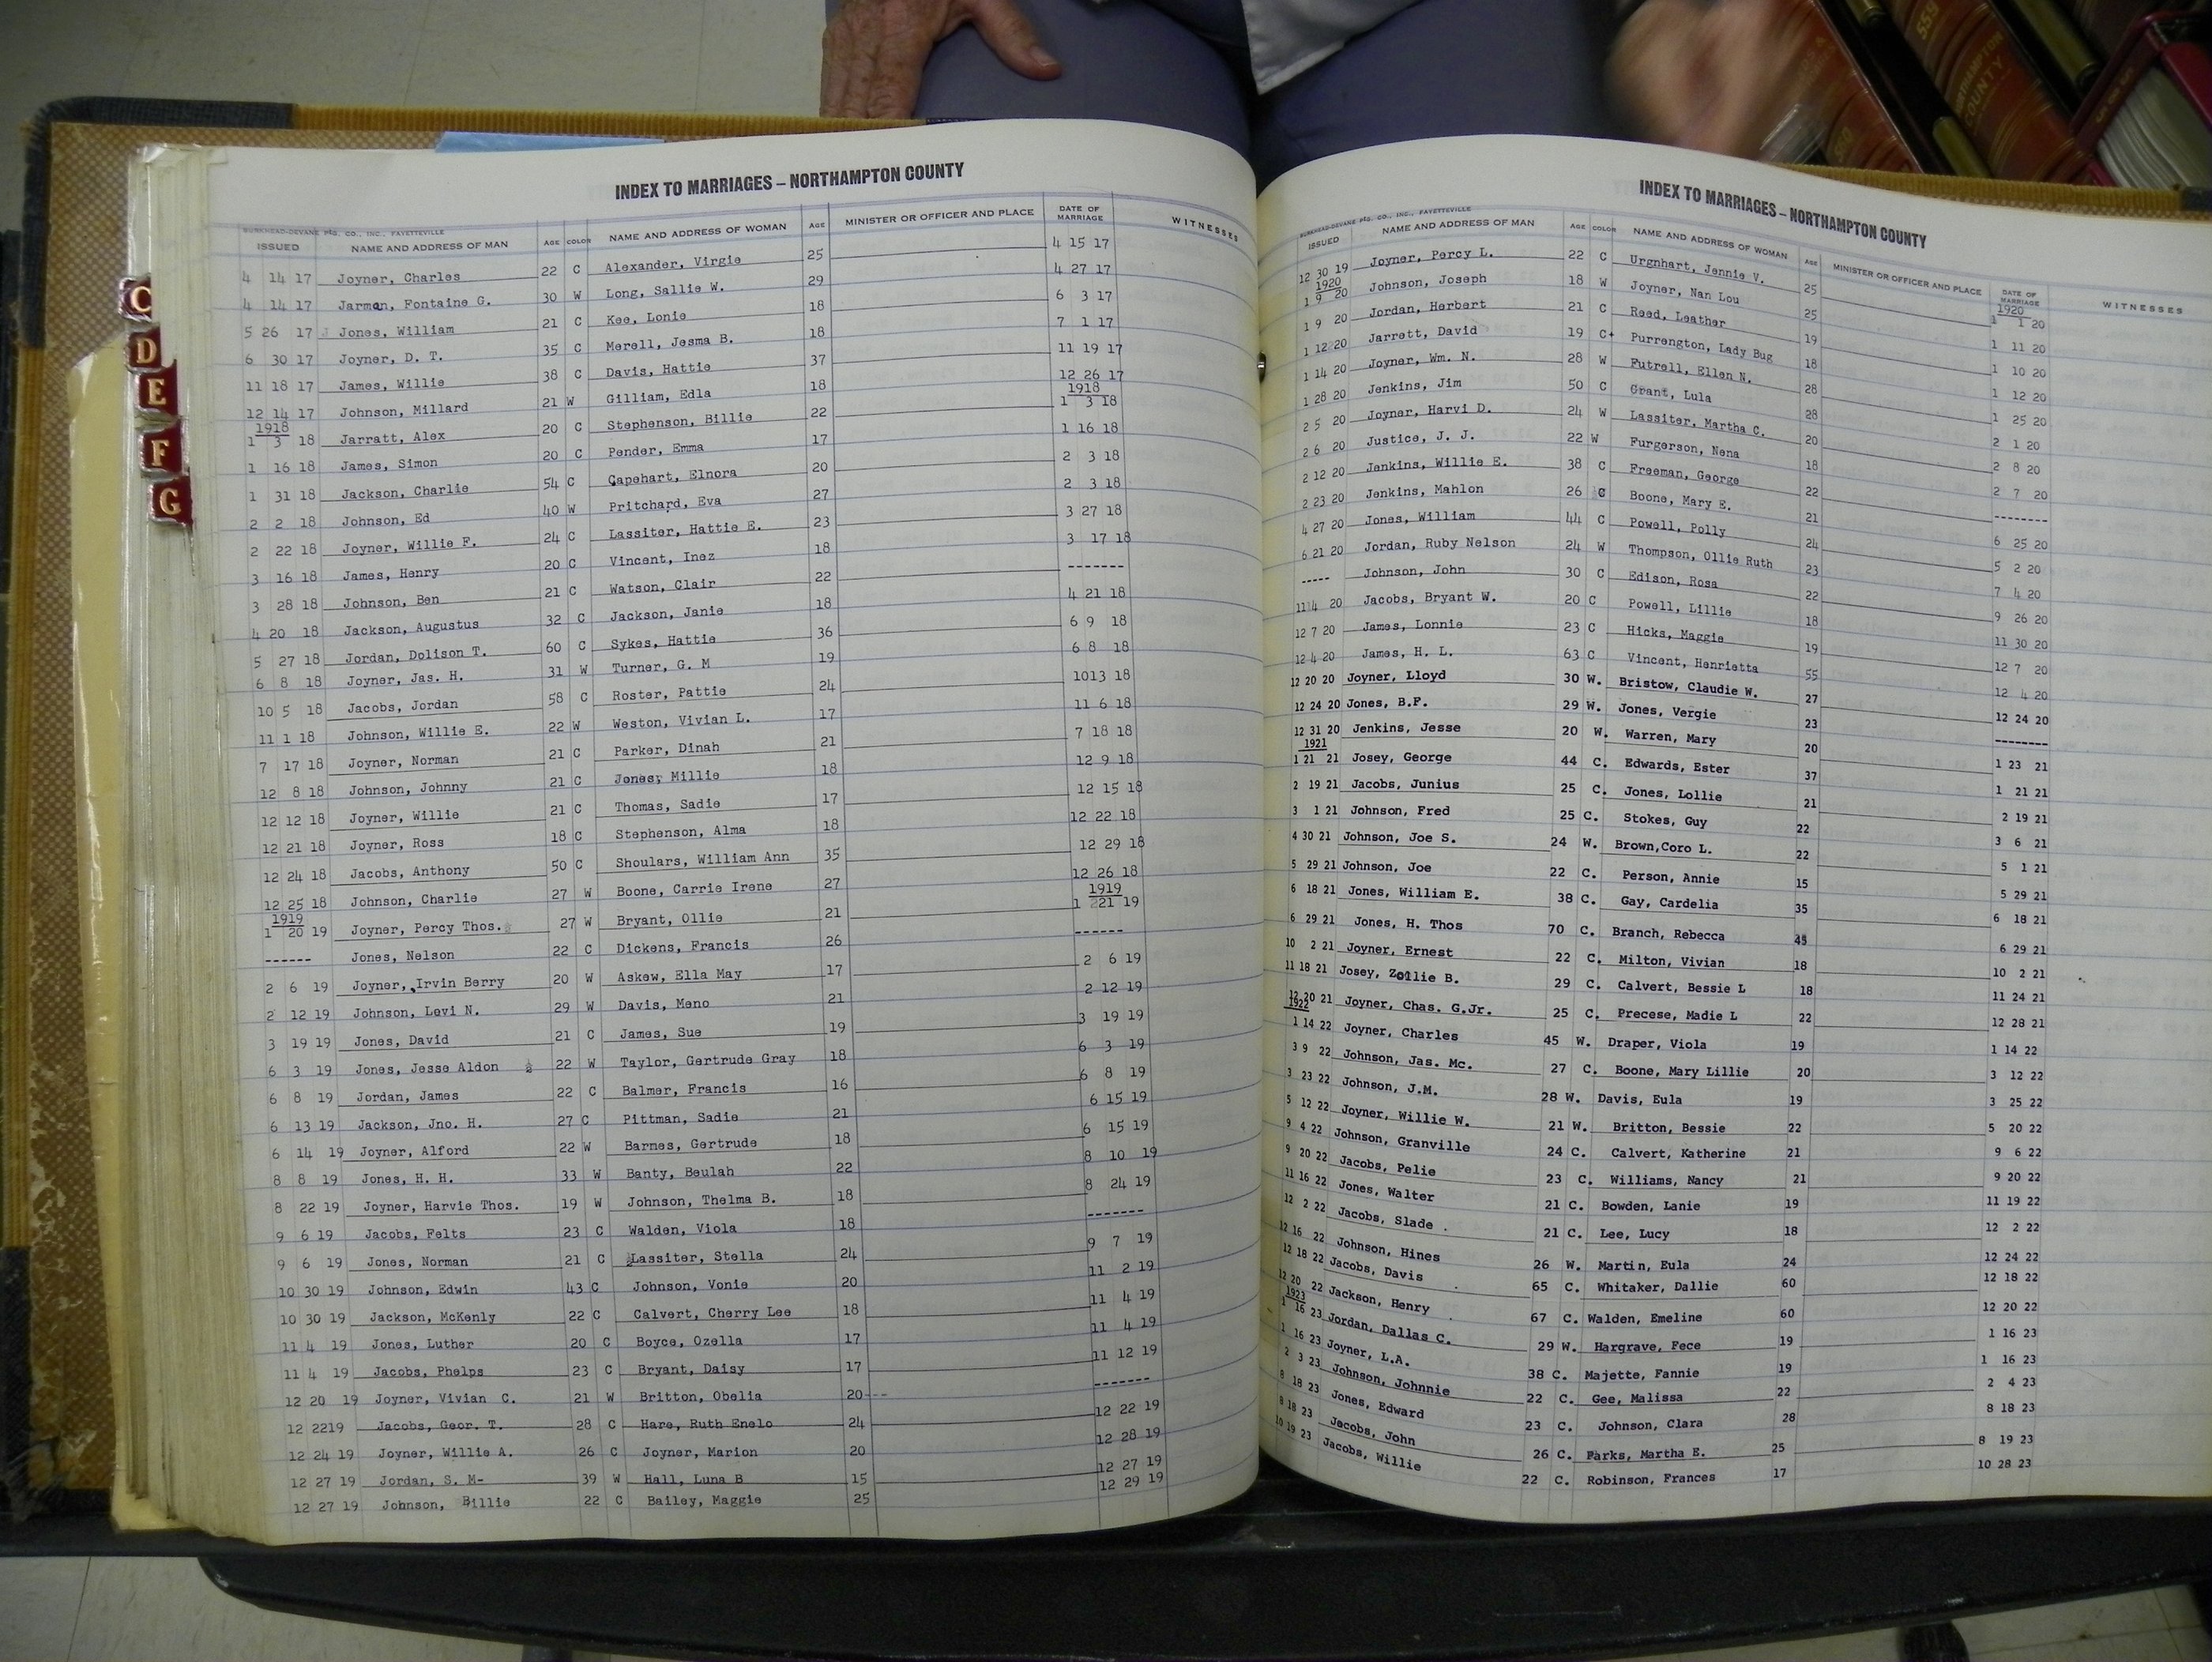 559
NORTHAMPTON
COUNTY
C
D
E
F
G
INDEX TO MARRIAGES – NORTHAMPTON COUNTY
ISSUED NAME AND ADDRESS OF MAN AGE COLOR NAME AND ADDRESS OF WOMAN AGE MINISTER OR OFFICER AND PLACE DATE OF MARRIAGE WITNESSES
4 14 17 Joyner, Charles 22 C Alexander, Virgie 25 4 15 17
4 14 17 Jarman, Fontaine G. 30 W Long, Sallie W. 29 4 27 17
5 26 17 Jones, William 21 C Kee, Lonie 18 6 3 17
6 30 17 Joyner, D. T. 35 C Merell, Jesma B. 18 7 1 17
11 18 17 James, Willie 38 C Davis, Hattie 37 11 19 17
12 14 17 Johnson, Millard 21 W Gilliam, Edla 18 12 26 17
1918 1918
1 3 18 Jarratt, Alex 20 C Stephenson, Billie 22 1 3 18
1 16 18 James, Simon 20 C Pender, Emma 17 1 16 18
1 31 18 Jackson, Charlie 54 C Capehart, Elnora 20 2 3 18
2 2 18 Johnson, Ed 40 W Pritchard, Eva 27 2 3 18
2 22 18 Joyner, Willie F. 24 C Lassiter, Hattie E. 23 3 27 18
3 16 18 James, Henry 20 C Vincent, Inez 18 3 17 18
3 28 18 Johnson, Ben 21 C Watson, Clair 22 -------
4 20 18 Jackson, Augustus 32 C Jackson, Janie 18 4 21 18
5 27 18 Jordan, Dolison T. 60 C Sykes, Hattie 36 6 9 18
6 8 18 Joyner, Jas. H. 31 W Turner, G. M 19 6 8 18
10 5 18 Jacobs, Jordan 58 C Roster, Pattie 24 1013 18
11 1 18 Johnson, Willie E. 22 W Weston, Vivian L. 17 11 6 18
7 17 18 Joyner, Norman 21 C Parker, Dinah 21 7 18 18
12 8 18 Johnson, Johnny 21 C Jones, Millie 18 12 9 18
12 12 18 Joyner, Willie 21 C Thomas, Sadie 17 12 15 18
12 21 18 Joyner, Ross 18 C Stephenson, Alma 18 12 22 18
12 24 18 Jacobs, Anthony 50 C Shoulars, William Ann 35 12 29 18
12 25 18 Johnson, Charlie 27 W Boone, Carrie Irene 27 12 26 18
1919 1919
1 20 19 Joyner, Percy Thos. 27 W Bryant, Ollie 21 1 221 19
------ Jones, Nelson 22 C Dickens, Francis 26 ------
2 6 19 Joyner, Irvin Berry 20 W Askew, Ella May 17 2 6 19
2 12 19 Johnson, Levi N. 29 W Davis, Meno 21 2 12 19
3 19 19 Jones, David 21 C James, Sue 19 3 19 19
6 3 19 Jones, Jesse Aldon 22 W Taylor, Gertrude Gray 18 6 3 19
6 8 19 Jordan, James 22 C Balmer, Francis 16 6 8 19
6 13 19 Jackson, Jno. H. 27 C Pittman, Sadie 21 6 15 19
6 14 19 Joyner, Alford 22 W Barmes, Gertrude 18 6 15 19
8 8 19 Jones, H. H. 33 W Banty, Beulah 22 8 10 19
8 22 19 Joyner, Harvie Thos. 19 W Johnson, Thelma B. 18 8 24 19
9 6 19 Jacobs, Felts 23 C Walden, Viola 18 -------
9 6 19 Jones, Norman 21 C Lassiter, Stella 24 9 7 19
10 30 19 Johnson, Edwin 43 C Johnson, Vonie 20 11 2 19
10 30 19 Jackson, McKenly 22 C Calvert, Cherry Lee 18 11 4 19
11 4 19 Jones, Luther 20 C Boyce, Ozella 17 11 4 19
11 4 19 Jacobs, Phelps 23 C Bryant, Daisy 17 11 12 19
12 20 19 Joyner, Vivian C. 21 W Britton, Obelia 20--- -------
12 2219 Jacobs, Geor. T. 28 C Hare, Ruth Enelo 24 12 22 19
12 24 19 Joyner, Willie A. 26 C Joyner, Marion 20 12 28 19
12 27 19 Jordan, S. M- 39 W Hall, Luna B 15 12 27 19
12 27 19 Johnson, Billie 22 C Bailey, Maggie 25 12 29 19
INDEX TO MARRIAGES – NORTHAMPTON COUNTY
ISSUED NAME AND ADDRESS OF MAN AGE COLOR NAME AND ADDRESS OF WOMAN AGE MINISTER OR OFFICER AND PLACE DATE OF MARRIAGE WITNESSES
1920
12 30 19 Joyner, Percy L. 22 C Urgnhart, Jennie V. 25 1 1 20
1920
1 9 20 Johnson, Joseph 18 W Joyner, Nan Lou 25 1 11 20
1 9 20 Jordan, Herbert 21 C Reed, Leather 19 1 10 20
1 12 20 Jarrett, David 19 C Purrengton, Lady Bug 18 1 12 20
1 14 20 Joyner, Wm. N. 28 W Futrell, Ellen N. 28 1 25 20
1 28 20 Jenkins, Jim 50 C Grant, Lula 28 2 1 20
2 5 20 Joyner, Harvi D. 24 W Lassiter, Martha C. 20 2 8 20
2 6 20 Justice, J. J. 22 W Furgerson, Nena 18 2 7 20
2 12 20 Jenkins, Willie E. 38 C Freeman, George 22 -------
2 23 20 Jenkins, Mahlon 26 C Boone, Mary E. 21 6 25 20
4 27 20 Jones, William 44 C Powell, Polly 24 5 2 20
6 21 20 Jordan, Ruby Nelson 24 W Thompson, Ollie Ruth 23 7 4 20
----- Johnson, John 30 C Edison, Rosa 22 9 26 20
11 4 20 Jacobs, Bryant W. 20 C Powell, Lillie 18 11 30 20
12 7 20 James, Lonnie 23 C Hicks, Maggie 19 12 7 20
12 4 20 James, H. L. 63 C Vincent, Henrietta 55 12 4 20
12 20 20 Joyner, Lloyd 30 W. Bristow, Claudie W. 27 12 24 20
12 24 20 Jones, B.F. 29 W. Jones, Vergie 23 --------
12 31 20 Jenkins, Jesse 20 W. Warren, Mary 20 1 23 21
1921
1 21 21 Josey, George 44 C. Edwards, Ester 37 1 21 21
2 19 21 Jacobs, Junius 25 C. Jones, Lollie 21 2 19 21
3 1 21 Johnson, Fred 25 C. Stokes, Guy 22 3 6 21
4 30 21 Johnson, Joe S. 24 W. Brown,Coro L. 22 5 1 21
5 29 21 Johnson, Joe 22 C. Person, Annie 15 5 29 21
6 18 21 Jones, William E. 38 C. Gay, Cardelia 35 6 18 21
6 29 21 Jones, H. Thos 70 C. Branch, Rebecca 45 6 29 21
10 2 21 Joyner, Ernest 22 C. Milton, Vivian 18 10 2 21
11 18 21 Josey, Zollie B. 29 C. Calvert, Bessie L 18 11 24 21
12 20 21 Joyner, Chas. G.Jr. 25 C. Precese, Madie L 22 12 28 21
1922
1 14 22 Joyner, Charles 45 W. Draper, Viola 19 1 14 22
3 9 22 Johnson, Jas. Mc. 27 C. Boone, Mary Lillie 20 3 12 22
3 23 22 Johnson, J.M. 28 W. Davis, Eula 19 3 25 22
5 12 22 Joyner, Willie W. 21 W. Britton, Bessie 22 5 20 22
9 4 22 Johnson, Granville 24 C. Calvert, Katherine 21 9 6 22
9 20 22 Jacobs, Pelie 23 C. Williams, Nancy 21 9 20 22
11 16 22 Jones, Walter 21 C. Bowden, Lanie 19 11 19 22
12 2 22 Jacobs, Slade . 21 C. Lee, Lucy 18 12 2 22
12 16 22 Johnson, Hines 26 W. Martin, Eula 24 12 24 22
12 18 22 Jacobs, Davis 65 C. Whitaker, Dallie 60 12 18 22
12 20 22 Jackson, Henry 67 C. Walden, Emeline 60 12 20 22
1923
1 16 23 Jordan, Dallas C. 29 W. Hargrave, Fece 19 1 16 23
1 16 23 Joyner, L.A. 38 C. Majette, Fannie 19 1 16 23
2 3 23 Johnson, Johnnie 22 C. Gee, Malissa 22 2 4 23
8 18 23 Jones, Edward 23 C. Johnson, Clara 28 8 18 23
8 18 23 Jacobs, John 26 C. Parks, Martha E. 25 8 19 23
10 19 23 Jacobs, Willie 22 C. Robinson, Frances 17 10 28 23